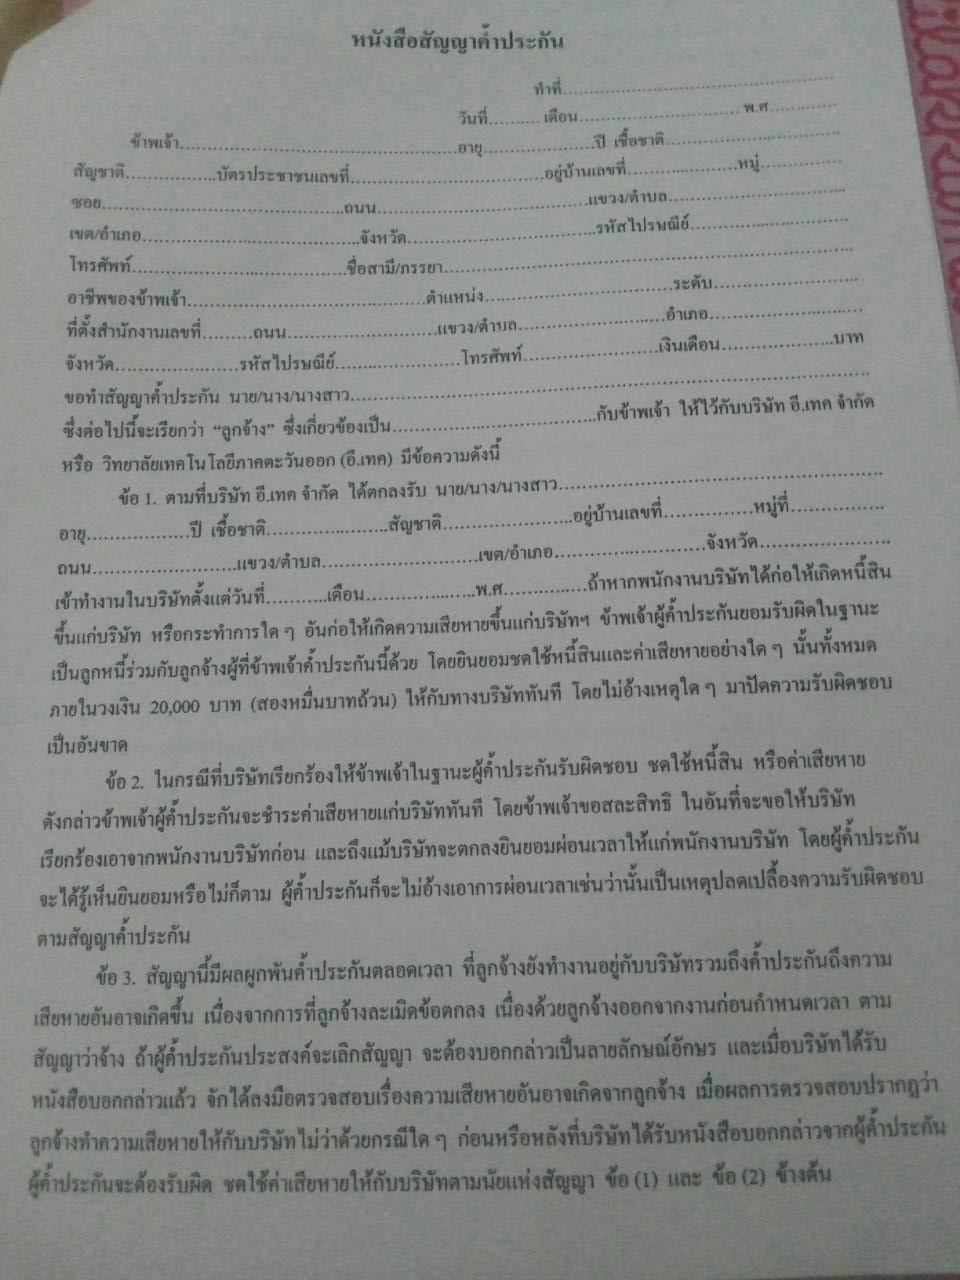 หนังสือสัญญาค้ำประกัน
ทำที่..................................................
วันที่.......... เดือน.............................. พ.ศ.............
ข้าพเจ้า....................................................อายุ.....................ปี เชื้อชาติ................................
สัญชาติ.................บัตรประชาชนเลขที่....................................อยู่บ้านเลขที่.....................หมู่...............
ซอย.............................................ถนน.............................................แขวง/ตำบล.................................
เขต/อำเภอ.........................................จังหวัด...................................รหัสไปรษณีย์.............................
โทรศัพท์........................................ชื่อสามี/ภรรยา...........................................................................
อาชีพของข้าพเจ้า.............................................ตำแหน่ง...................................ระดับ...........................
ที่ตั้งสำนักงานเลขที่.........ถนน..................................แขวง/ตำบล............................อำเภอ............................
จังหวัด.......................รหัสไปรษณีย์.......................โทรศัพท์.........................เงินเดือน.....................บาท
ขอทำสัญญาค้ำประกัน นาย/นาง/นางสาว.................................................................................................
ซึ่งต่อไปนี้จะเรียกว่า “ลูกจ้าง” ซึ่งเกี่ยวข้องเป็น......................................กับข้าพเจ้า ให้ไว้กับบริษัท อี.เทค จำกัด
หรือ วิทยาลัยเทคโนโลยีภาคตะวันออก (อี.เทค) มีข้อความดังนี้
ข้อ 1. ตามที่บริษัท อี.เทค จำกัด ได้ตกลงรับ นาย/นาง/นางสาว...........................................................
อายุ...................ปี เชื้อชาติ.......................สัญชาติ........................อยู่บ้านเลขที่.................หมู่ที่..................
ถนน...........................แขวง/ตำบล.............................เขต/อำเภอ............................จังหวัด........................
เข้าทำงานในบริษัทตั้งแต่วันที่...........เดือน.....................พ.ศ...............ถ้าหากพนักงานบริษัทได้ก่อให้เกิดหนี้สิน
ขึ้นแก่บริษัท หรือกระทำการใด ๆ อันก่อให้เกิดความเสียหายขึ้นแก่บริษัทฯ ข้าพเจ้าผู้ค้ำประกันยอมรับผิดในฐานะ
เป็นลูกหนี้ร่วมกับลูกจ้างผู้ที่ข้าพเจ้าค้ำประกันนี้ด้วย โดยยินยอมชดใช้หนี้สินและค่าเสียหายอย่างใด ๆ นั้นทั้งหมด
ภายในวงเงิน 20,000 บาท (สองหมื่นบาทถ้วน) ให้กับทางบริษัททันที โดยไม่อ้างเหตุใด ๆ มาปัดความรับผิดชอบ
เป็นอันขาด
ข้อ 2. ในกรณีที่บริษัทเรียกร้องให้ข้าพเจ้าในฐานะผู้ค้ำประกันรับผิดชอบ ชดใช้หนี้สิน หรือค่าเสียหาย
ดังกล่าวข้าพเจ้าผู้ค้ำประกันจะชำระค่าเสียหายแก่บริษัททันที โดยข้าพเจ้าขอสละสิทธิ ในอันที่จะขอให้บริษัท
เรียกร้องเอาจากพนักงานบริษัทก่อน และถึงแม้บริษัทจะตกลงยินยอมผ่อนเวลาให้แก่พนักงานบริษัท โดยผู้ค้ำประกัน
จะได้รู้เห็นยินยอมหรือไม่ก็ตาม ผู้ค้ำประกันก็จะไม่อ้างเอาการผ่อนเวลาเช่นว่านั้นเป็นเหตุปลดเปลื้องความรับผิดชอบ
ตามสัญญาค้ำประกัน
ข้อ 3. สัญญานี้มีผลผูกพันค้ำประกันตลอดเวลา ที่ลูกจ้างยังทำงานอยู่กับบริษัทรวมถึงค้ำประกันถึงความ
เสียหายอันอาจเกิดขึ้น เนื่องจากการที่ลูกจ้างละเมิดข้อตกลง เนื่องด้วยลูกจ้างออกจากงานก่อนกำหนดเวลา ตาม
สัญญาว่าจ้าง ถ้าผู้ค้ำประกันประสงค์จะเลิกสัญญา จะต้องบอกกล่าวเป็นลายลักษณ์อักษร และเมื่อบริษัทได้รับ
หนังสือบอกกล่าวแล้ว จักได้ลงมือตรวจสอบเรื่องความเสียหายอันอาจเกิดจากลูกจ้าง เมื่อผลการตรวจสอบปรากฏว่า
ลูกจ้างทำความเสียหายให้กับบริษัทไม่ว่าด้วยกรณีใด ๆ ก่อนหรือหลังที่บริษัทได้รับหนังสือบอกกล่าวจากผู้ค้ำประกัน
ผู้ค้ำประกันจะต้องรับผิด ชดใช้ค่าเสียหายให้กับบริษัทตามนัยแห่งสัญญา ข้อ (1) และ ข้อ (2) ข้างต้น